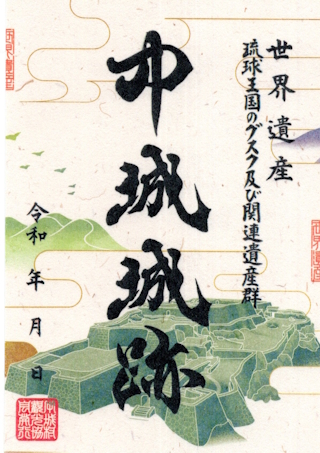 世界遺産
琉球王国のグスク及び関連遺産群
中城城跡
令和 年 月 日